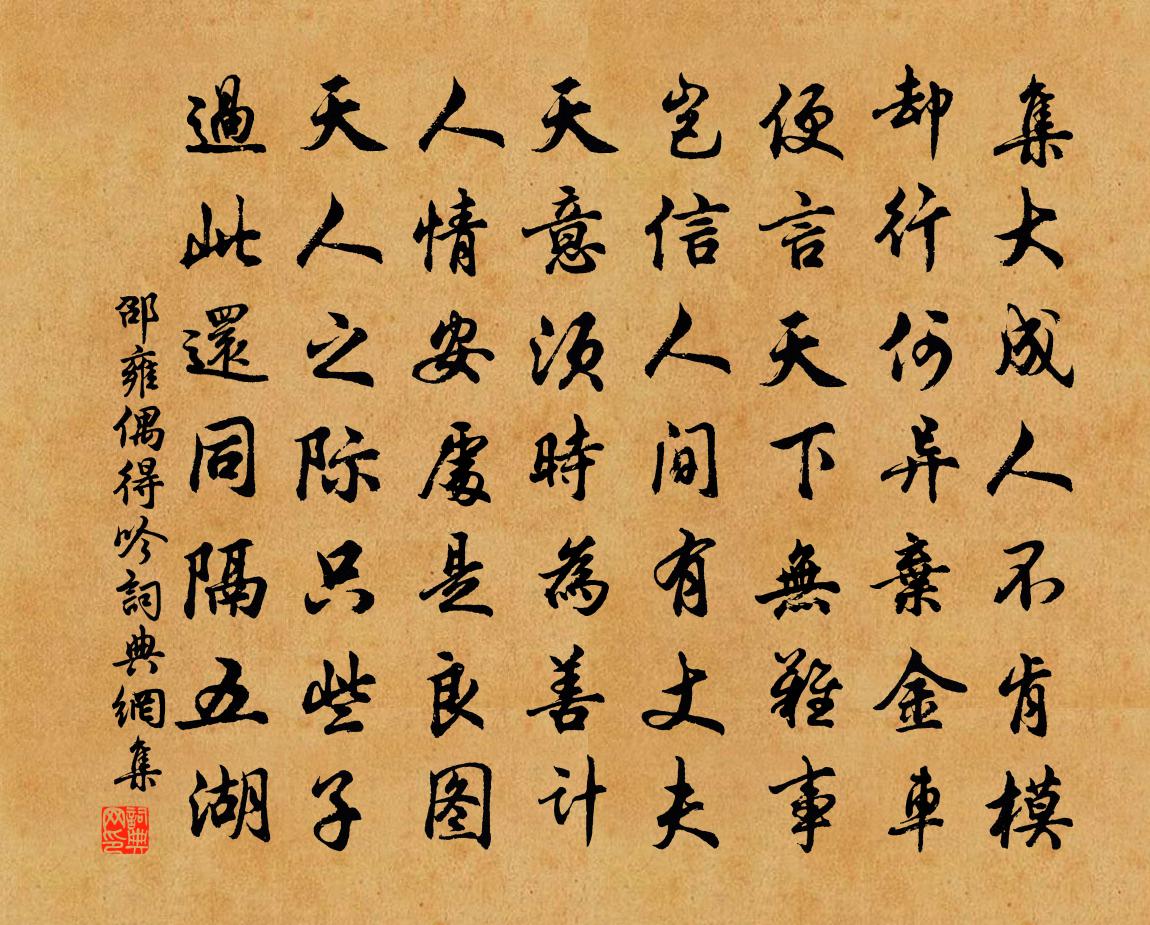 集大成人不肯模
却行何异棄金車
便言天下無難事
豈信人间有丈夫
天意须時為善计
人情安處是良图
天人之际只些子
過此還同隔五湖
邵雍偶得吟詞典網集
詞典网印